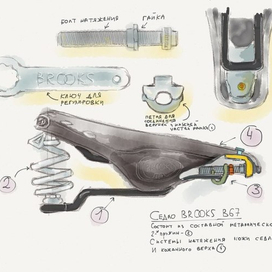 БОЛТ НАТЯЖЕНИЯ
ГАЙКА
BROOKS
КЛЮЧ ДЛЯ
РЕГУЛИРОВКИ
ПЕТЛЯ ДЛЯ
СОЕДИНЕНИЯ
ВЕРХНЕЙ И НИЖНЕЙ
ЧАСТИ РАМКИ
4
2
1
3
СЕДЛО BROOKS B67
СОСТОИТ ИЗ СОСТАВНОЙ МЕТАЛЛИЧЕСК
2 ПРУЖИН - 2
СИСТЕМЫ НАТЯЖЕНИЯ КОЖИ СЕДЛА
И КОЖАНОГО ВЕРХА 4